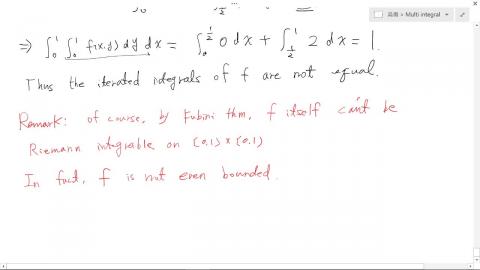 ⇒ ∫₀¹ ∫₀¹ f(x,y) dy dx = ∫₀^{1/2} 0 dx + ∫_{1/2}^1 2 dx = 1.
Thus the iterated integrals of f are not equal.
Remark: of course, by Fubini thm, f itself can't be
Riemann integrable on [0,1) × [0,1)
In fact, f is not even bounded.
> Multi integral